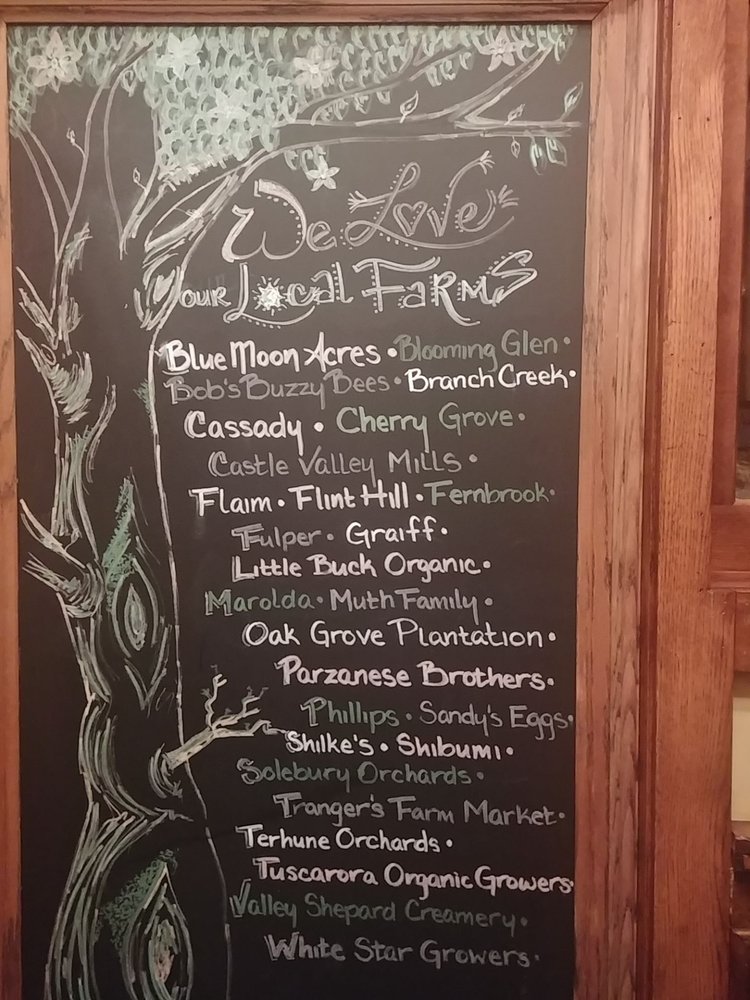 We Love
our Local Farms
Blue Moon Acres • Blooming Glen •
Bob's Buzzy Bees • Branch Creek •
Cassady • Cherry Grove •
Castle Valley Mills •
Flaim • Flint Hill • Fernbrook •
Fulper • Graiff •
Little Buck Organic •
Marolda • Muth Family •
Oak Grove Plantation •
Parzanese Brothers •
Phillips • Sandy's Eggs •
Shilke's • Shibumi •
Solebury Orchards •
Tranger's Farm Market •
Terhune Orchards •
Tuscarora Organic Growers •
Valley Shepard Creamery •
White Star Growers •